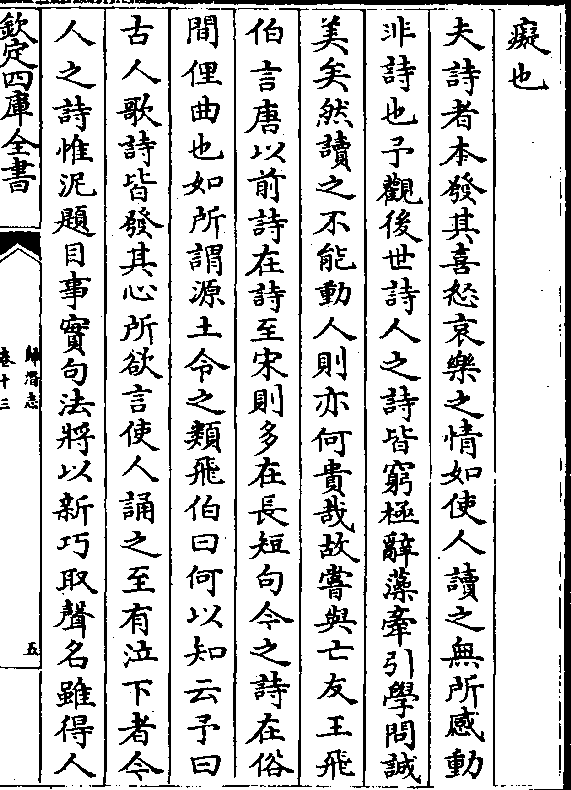 癡也
夫詩者本發其喜怒哀樂之情如使人讀之無所感動
非詩也予觀後世詩人之詩皆窮極辭藻牽引學問誠
美矣然讀之不能動人則亦何貴哉故嘗與亡友王飛
伯言唐以前詩在詩至宋則多在長短句今之詩在俗
間俚曲也如所謂源土令之類飛伯曰何以知云予曰
古人歌詩皆發其心所欲言使人誦之至有泣下者今
人之詩惟泥題目事實句法將以新巧取聲名雖得人
欽定四庫全書
歸潛志
卷十三
五